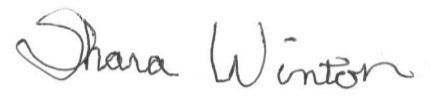 Shara Winton